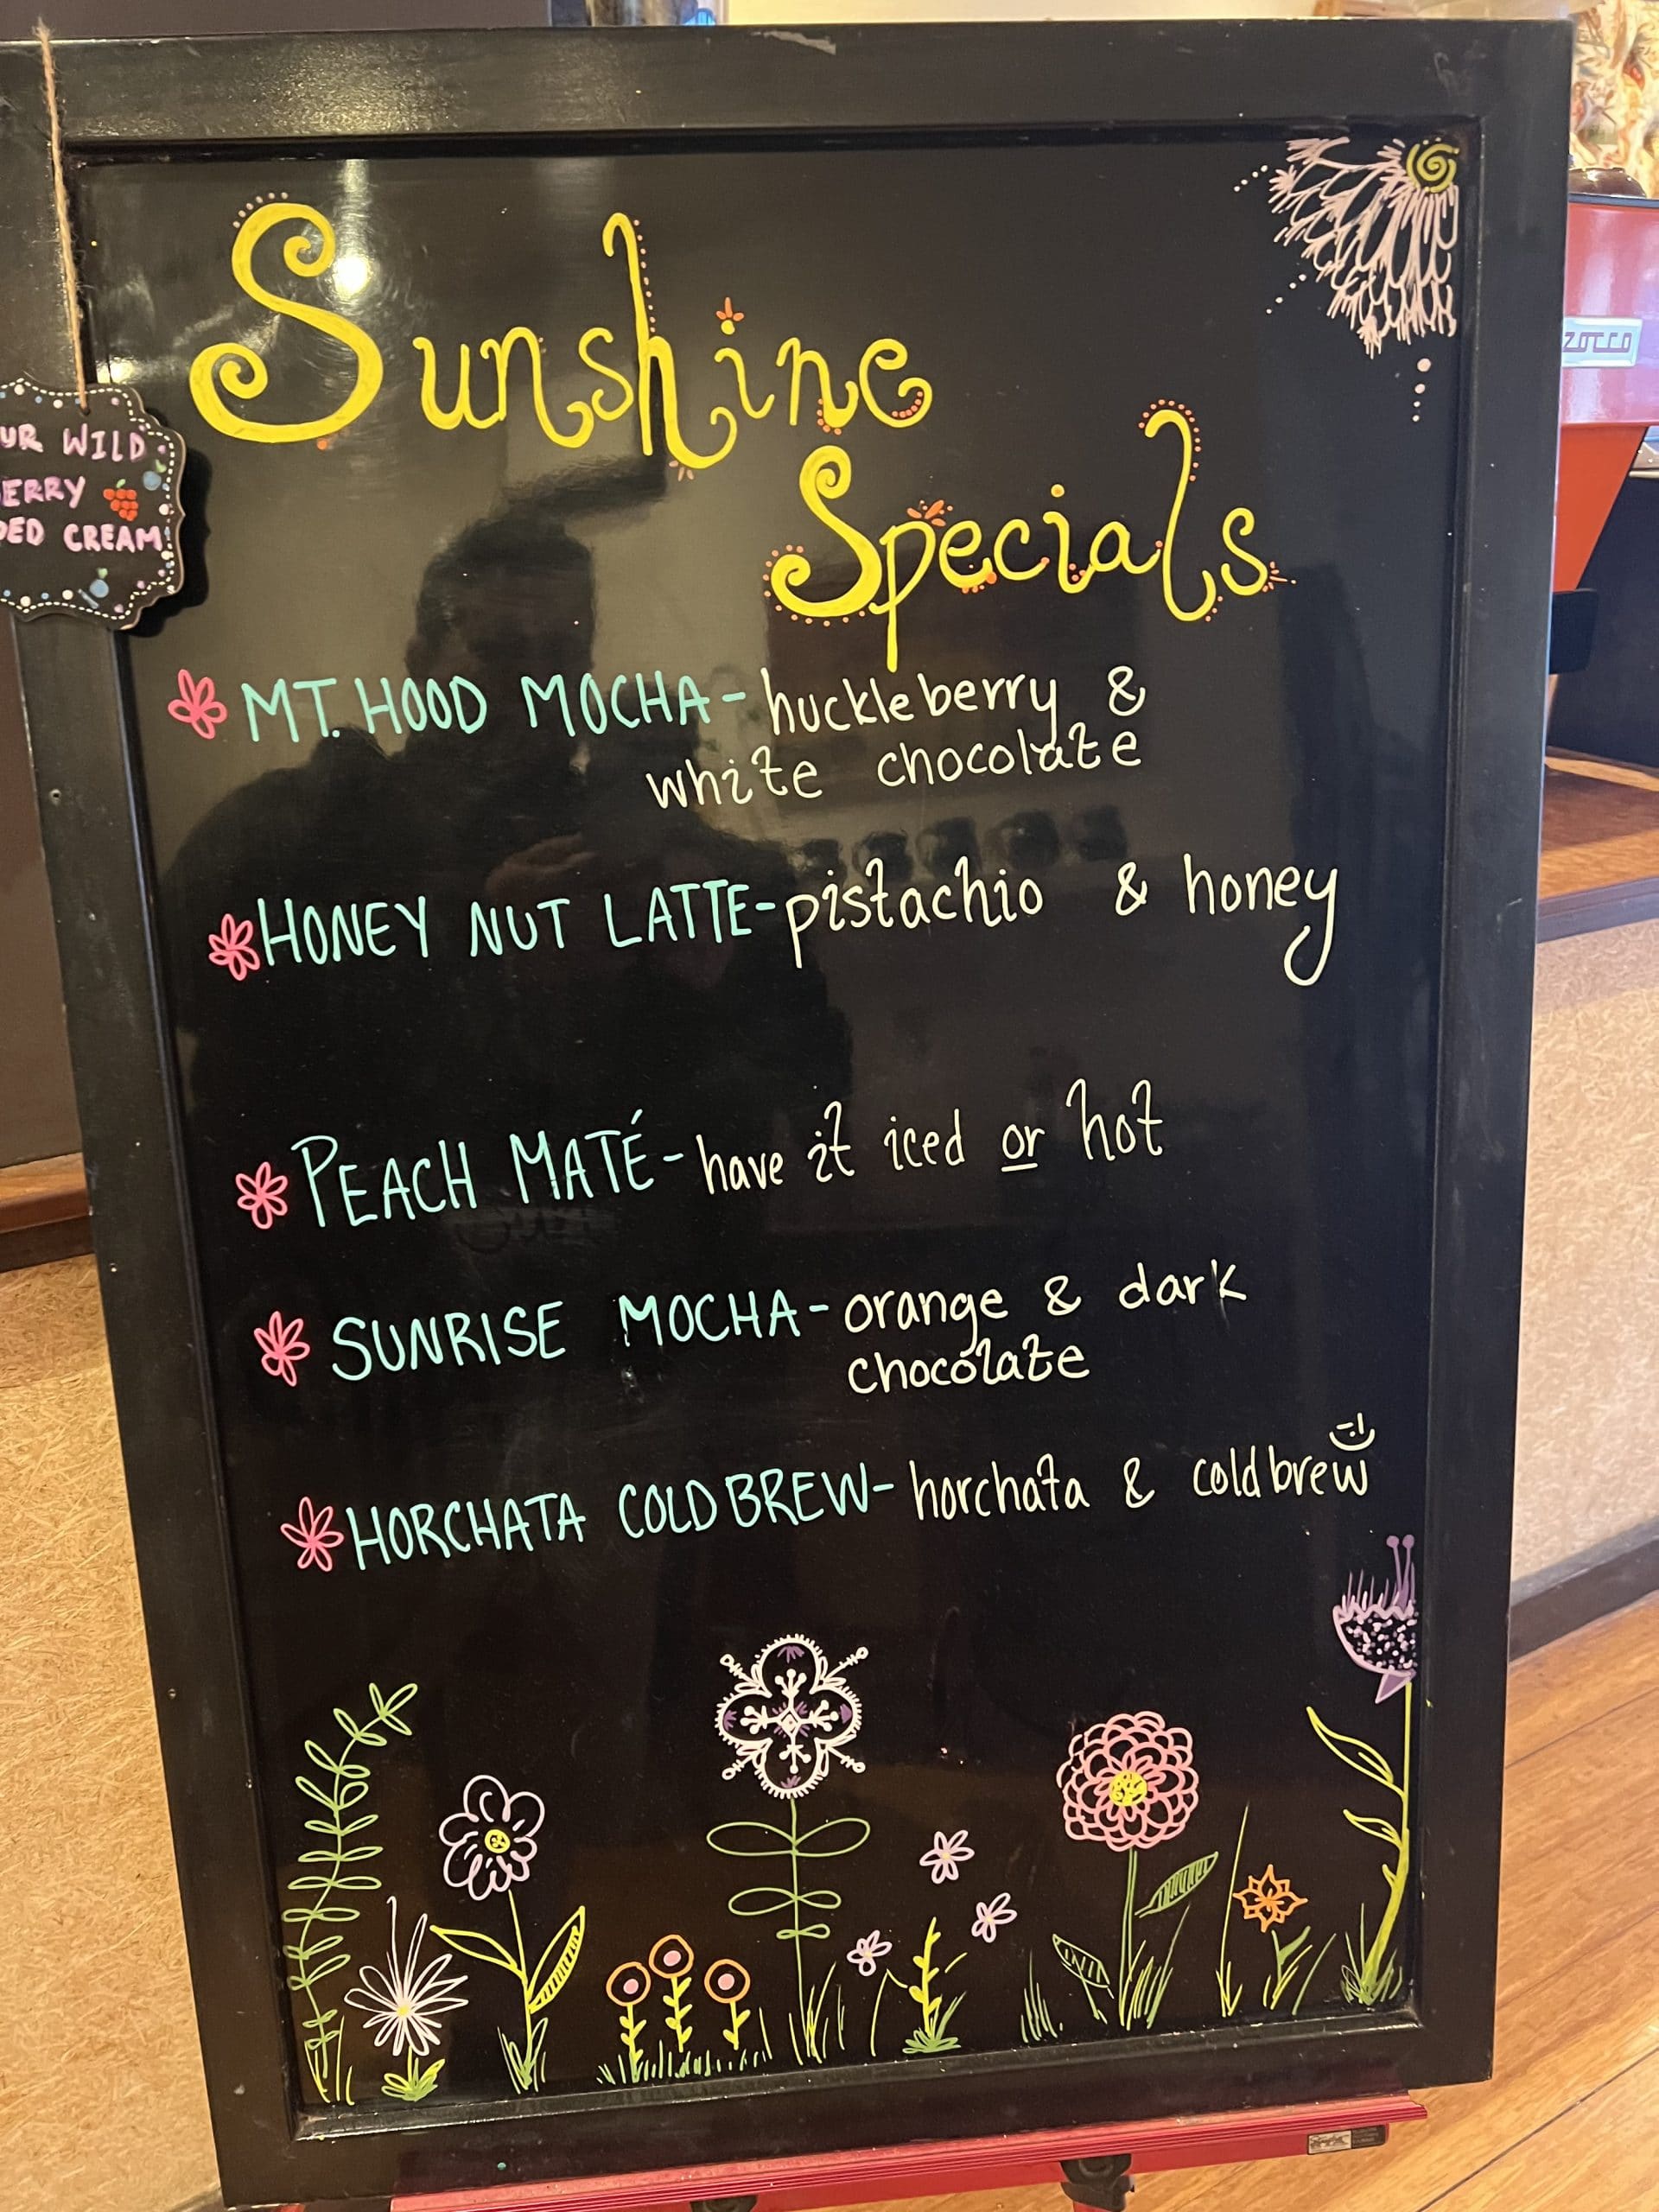 Sunshine
Specials
WILD
CREAM
MT. HOOD MOCHA - huckleberry &
white chocolate
HONEY NUT LATTE - pistachio & honey
PEACH MATÉ - have it iced or hot
SUNRISE MOCHA - orange & dark
chocolate
HORCHATA COLD BREW - horchata & cold brew